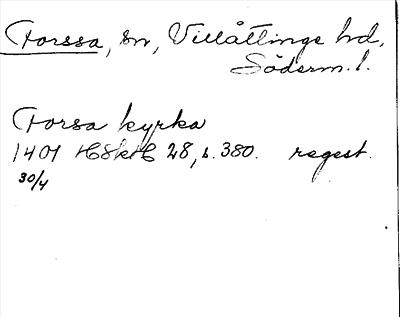 Forssa, sn, Villåttinge hd,
Söderm. l.
Forsa kyrka
1401 HSkH 28, s. 380. regest.
30/4